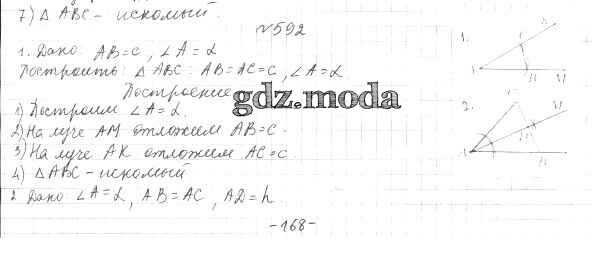 7) Δ ABC - искомый.
№592
1. Дано: AB=c, ∠A=α
Построить: Δ ABC: AB=AC=c, ∠A=α
Построение
gdz.moda
1) Построим ∠A=α.
2) На луче AM отложим AB=c.
3) На луче AK отложим AC=c.
4) ΔABC - искомый
2 Дано ∠A=α, AB=AC, AD=h.
-168-
1.
2.